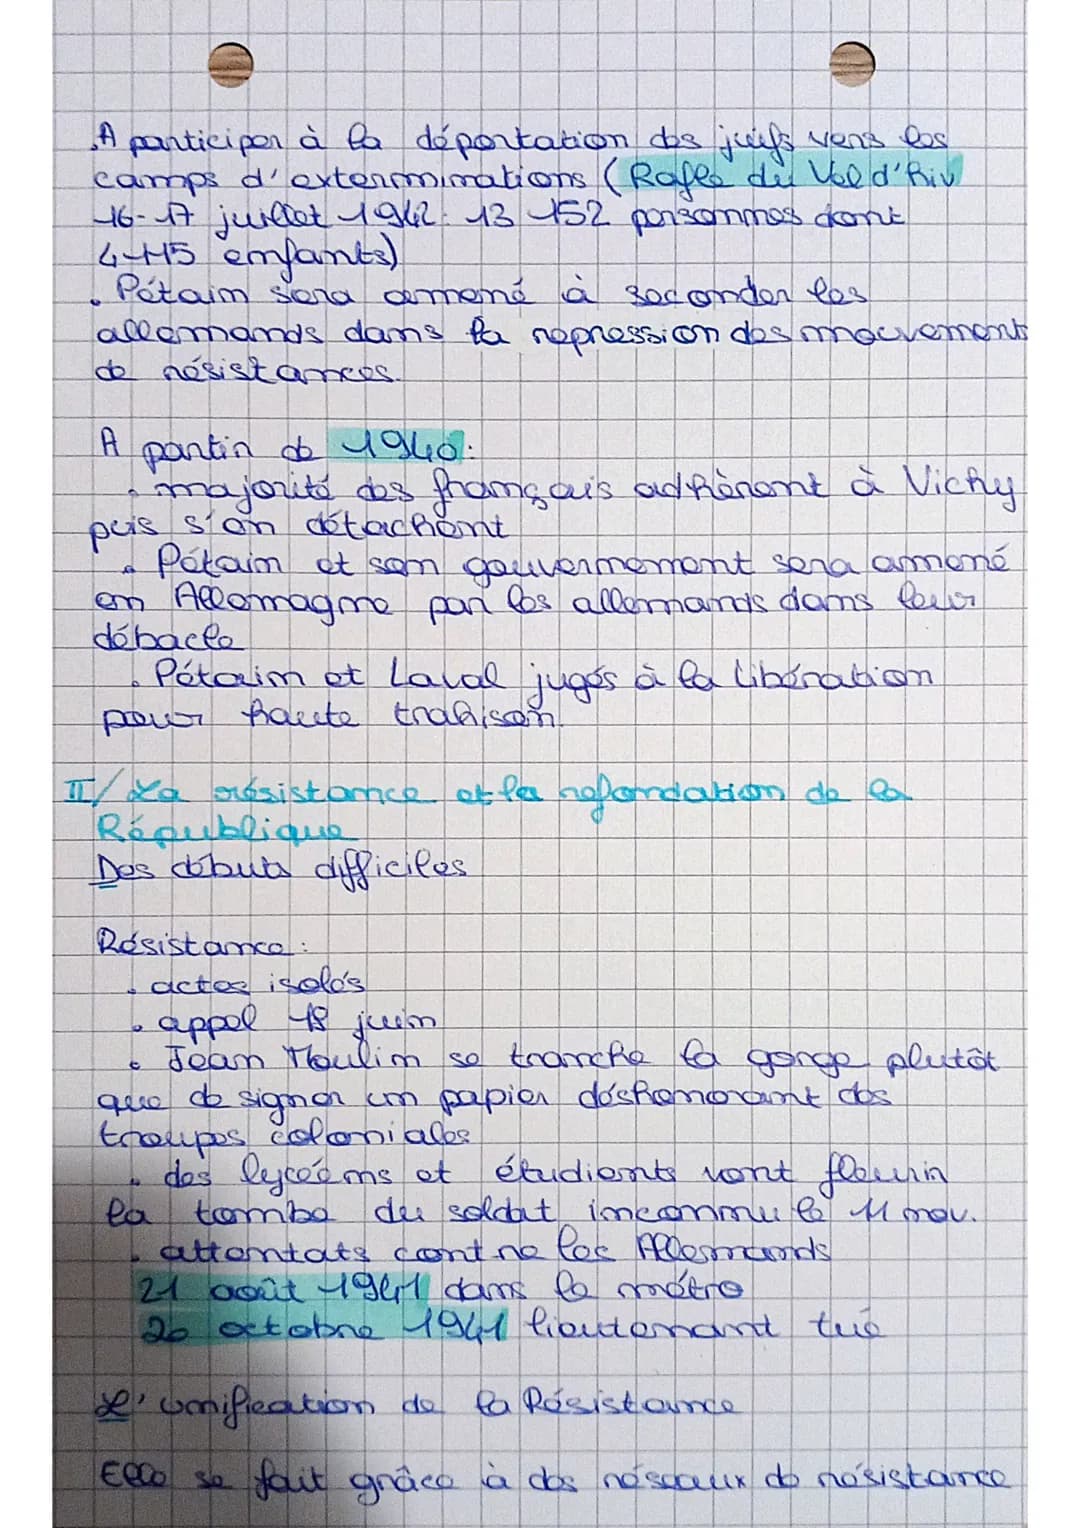 .A participer à la déportation des juifs vers les
camps d'exterminations (Rafle du Vel d'Hiv
16-17 juillet 1942: 13 152 personnes dont
4115 enfants)
. Pétain sera amené à seconder les
allemands dans la repression des mouvements
de résistances.
A partir de 1940:
. majorité des français adhèrent à Vichy
puis s'en détachent
. Pétain et son gouvernement sera amené
en Allemagne par les allemands dans leur
débacle
. Pétain et Laval jugés à la libération
pour haute trahison.
II/ La résistance et la refondation de la
République
Des débuts difficiles
Résistance :
. actes isolés
. appel 18 juin
. Jean Moulin se tranche la gorge plutôt
que de signer un papier déshonorant des
troupes coloniales
. des lycéens et étudients vont fleurir
la tombe du soldat inconnu le 11 nov.
. attentats contre les Allemands
21 août 1941 dans le métro
20 octobre 1941 lieutenant tué
L'unification de la Résistance
Elle se fait grâce à des réseaux de résistance